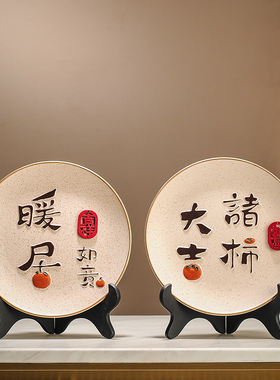 暖居
如意
諸柿
大吉